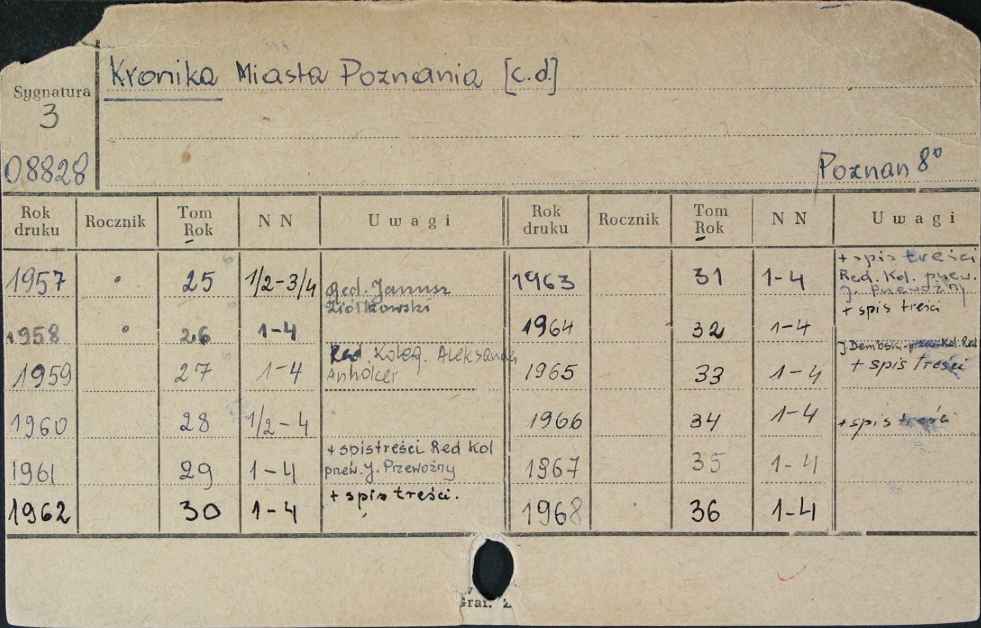 Kronika Miasta Poznania [c.d.]
Sygnatura
3
08828
Poznan 8°
Rok druku Rocznik Tom Rok N N Uwagi Rok druku Rocznik Tom Rok N N Uwagi
1957 25 1/2-3/4 Red. Janusz Ziółkowski 1963 31 1-4 + spis treści Red. Kol. przew. J. Przewoźny
1958 26 1-4 1964 32 1-4 + spis treści
1959 27 1-4 Red. Koleg. Aleksander Anholcer 1965 33 1-4 J Dembski Kol. Red + spis treści
1960 28 1/2-4 1966 34 1-4 + spis treści
1961 29 1-4 + spis treści Red Kol przew. J. Przewoźny 1967 35 1-4
1962 30 1-4 + spis treści. 1968 36 1-4
Graf. Z